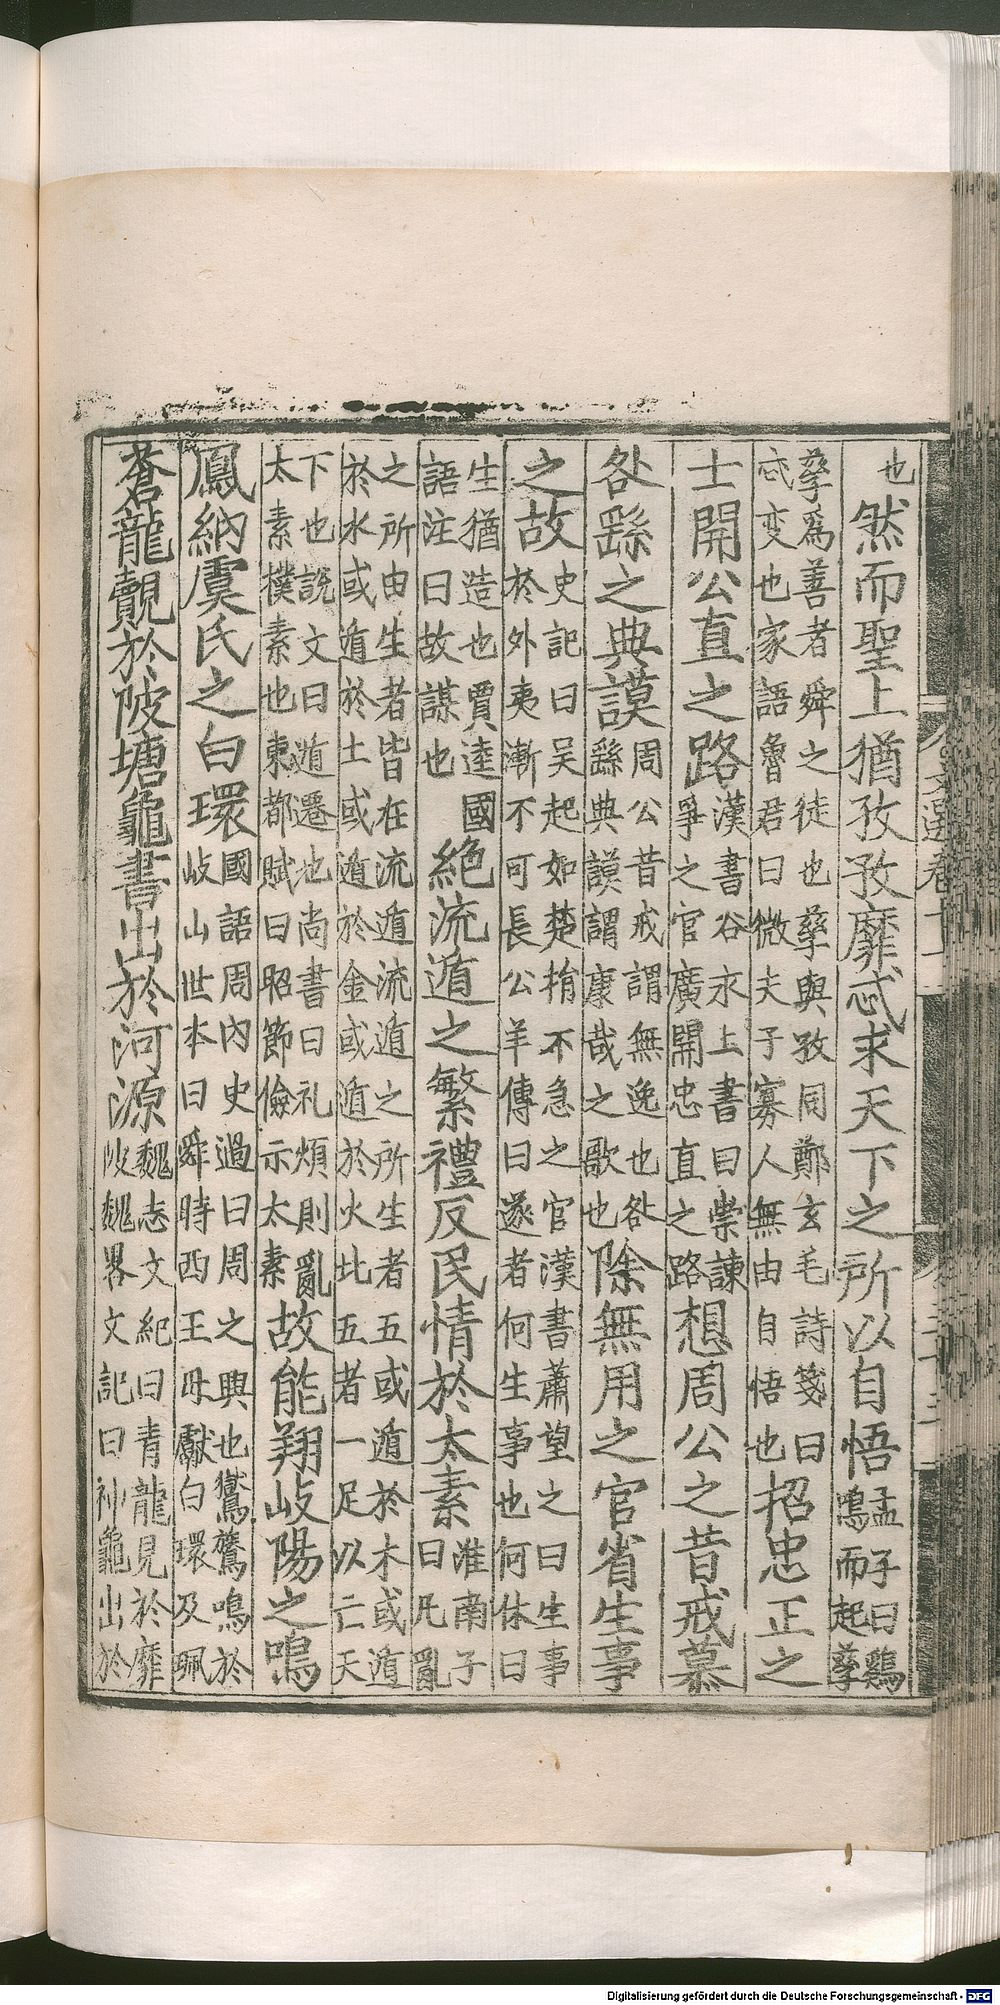 也然而聖上猶孜孜靡忒求天下之所以自悟孟子曰鷄鳴而起孳
孳爲善者舜之徒也孳與孜同鄭玄毛詩箋曰忒变也家語魯君曰微夫子寡人無由自悟也招忠正之
士開公直之路漢書谷永上書曰崇諫爭之官廣開忠直之路想周公之昔戒慕
咎繇之典謨周公昔戒謂無逸也咎繇典謨謂康哉之歌也除無用之官省生事
之故史記曰吳起如楚捎不急之官漢書蕭望之曰生事於外夷漸不可長公羊傳曰遂者何生事也何休曰
生猶造也賈逵國語注曰故謀也絶流遁之繁禮反民情於太素淮南子曰凡亂
之所由生者皆在流遁流遁之所生者五或遁於木或遁於水或遁於土或遁於金或遁於火此五者一足以亡天
下也說文曰遁遷也尚書曰礼煩則亂太素樸素也東都賦曰昭節儉示太素故能翔岐陽之鳴
鳳納虞氏之白環國語周內史過曰周之興也鸑鷟鳴於岐山世本曰舜時西王母獻白環及珮
蒼龍覿於陂塘龜書出於河源魏志文紀曰青龍見於靡陂魏畧文記曰神龜出於
Digitalisierung gefördert durch die Deutsche Forschungsgemeinschaft - DFG